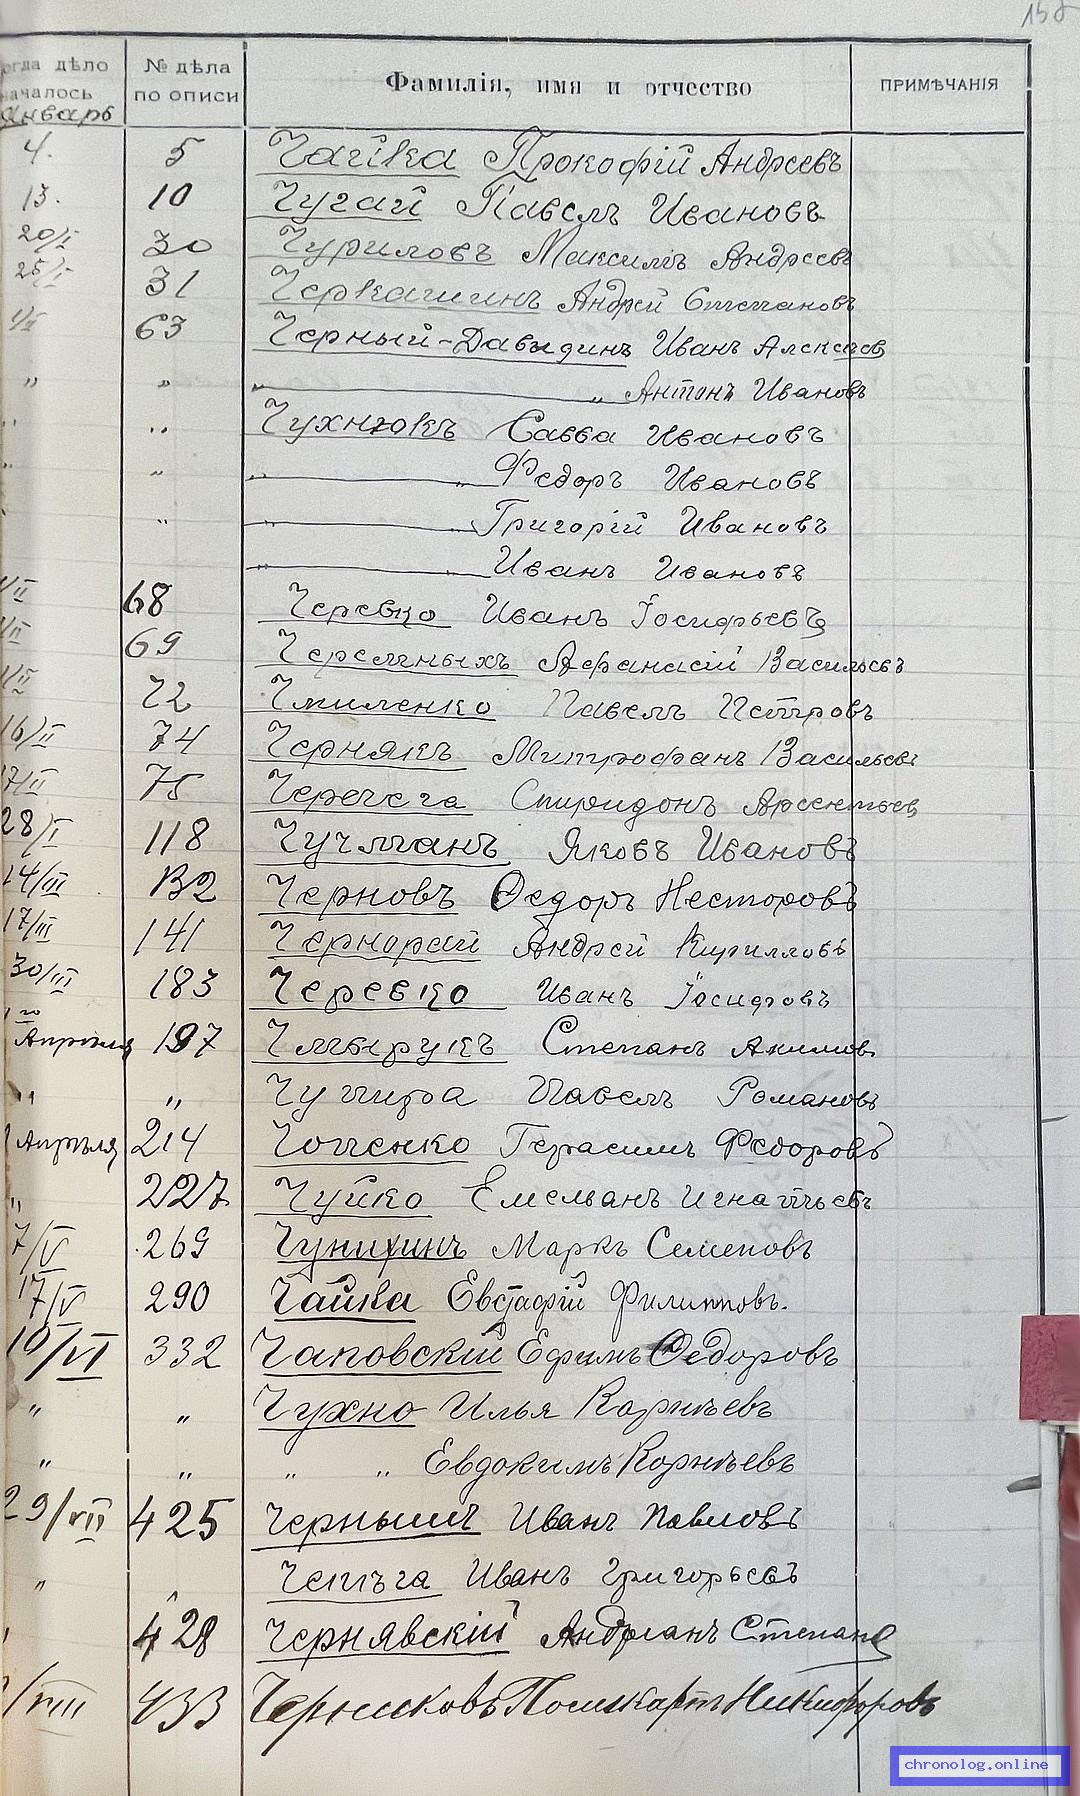 158
огда дѣло началось № дѣла по описи Фамилія, имя и отчество ПРИМѢЧАНІЯ
Январь
4. 5 Чайка Прокофій Андреевъ
13. 10 Чугай Павелъ Ивановъ
20/I 30 Чуриловъ Максимъ Андреевъ
25/I 31 Черкашинъ Андрей Степановъ
1/II 63 Черный-Давыдинъ Иванъ Алексѣев
" " " " Антонъ Ивановъ
" " Чухнюкъ Савва Ивановъ
" " " " Федоръ Ивановъ
" " " " Григорій Ивановъ
" " Иванъ Ивановъ
/II 68 Черевко Иванъ Іосифьевъ
/II 69 Черемныхъ Афанасій Васильевъ
/II 72 Чмиленко Павелъ Петровъ
16/II 74 Чернякъ Митрофанъ Васильевъ
17/II 75 Черечега Спиридонъ Арсентьев
28/I 118 Чучманъ Яковъ Ивановъ
14/III 132 Черновъ Федоръ Несторовъ
17/III 141 Чернорай Андрей Кирилловъ
30/III 183 Черевко Иванъ Іосифовъ
Апрѣля 197 Чмырукъ Степанъ Акимов
" " Чупыра Павелъ Романовъ
Апрѣля 214 Чопенко Герасимъ Федоровъ
" 227 Чуйко Емельянъ Игнатьевъ
7/V 269 Чунихинъ Маркъ Семеновъ
17/V 290 Чайка Евстафій Филипповъ.
10/VI 332 Чаповскій Ефимъ Федоровъ
" " Чухно Илья Корнѣевъ
" " " " Евдокимъ Корнѣевъ
29/VII 425 Чернышъ Иванъ Павловъ
" Чепѣга Иванъ Григорьевъ
428 Чернявскій Андріанъ Степано
/VIII 433 Черниковъ Поликарпъ Никифоровъ
chronolog.online